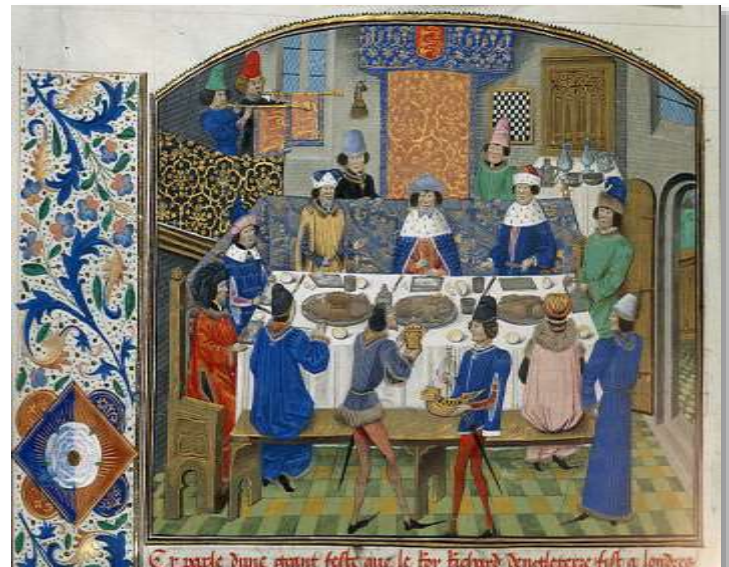 Cy parle dune grant feste que le Roy Richard Dengleterre fist a londres